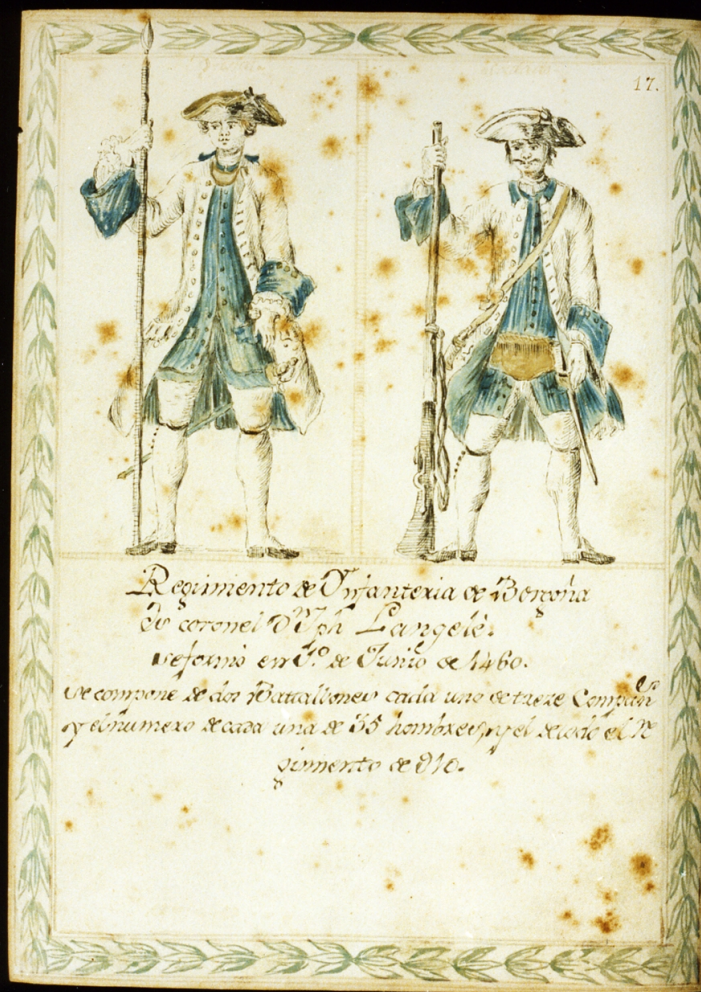 17.
Regimiento de Infanteria de
Su coronel D. Jph Langelé.
se formó en 1º. de Junio de
se compone de dos Battallones cada uno de treze Compañs
y el numero de cada una de 35 hombres, y el de todo el Re
gimiento de 910.